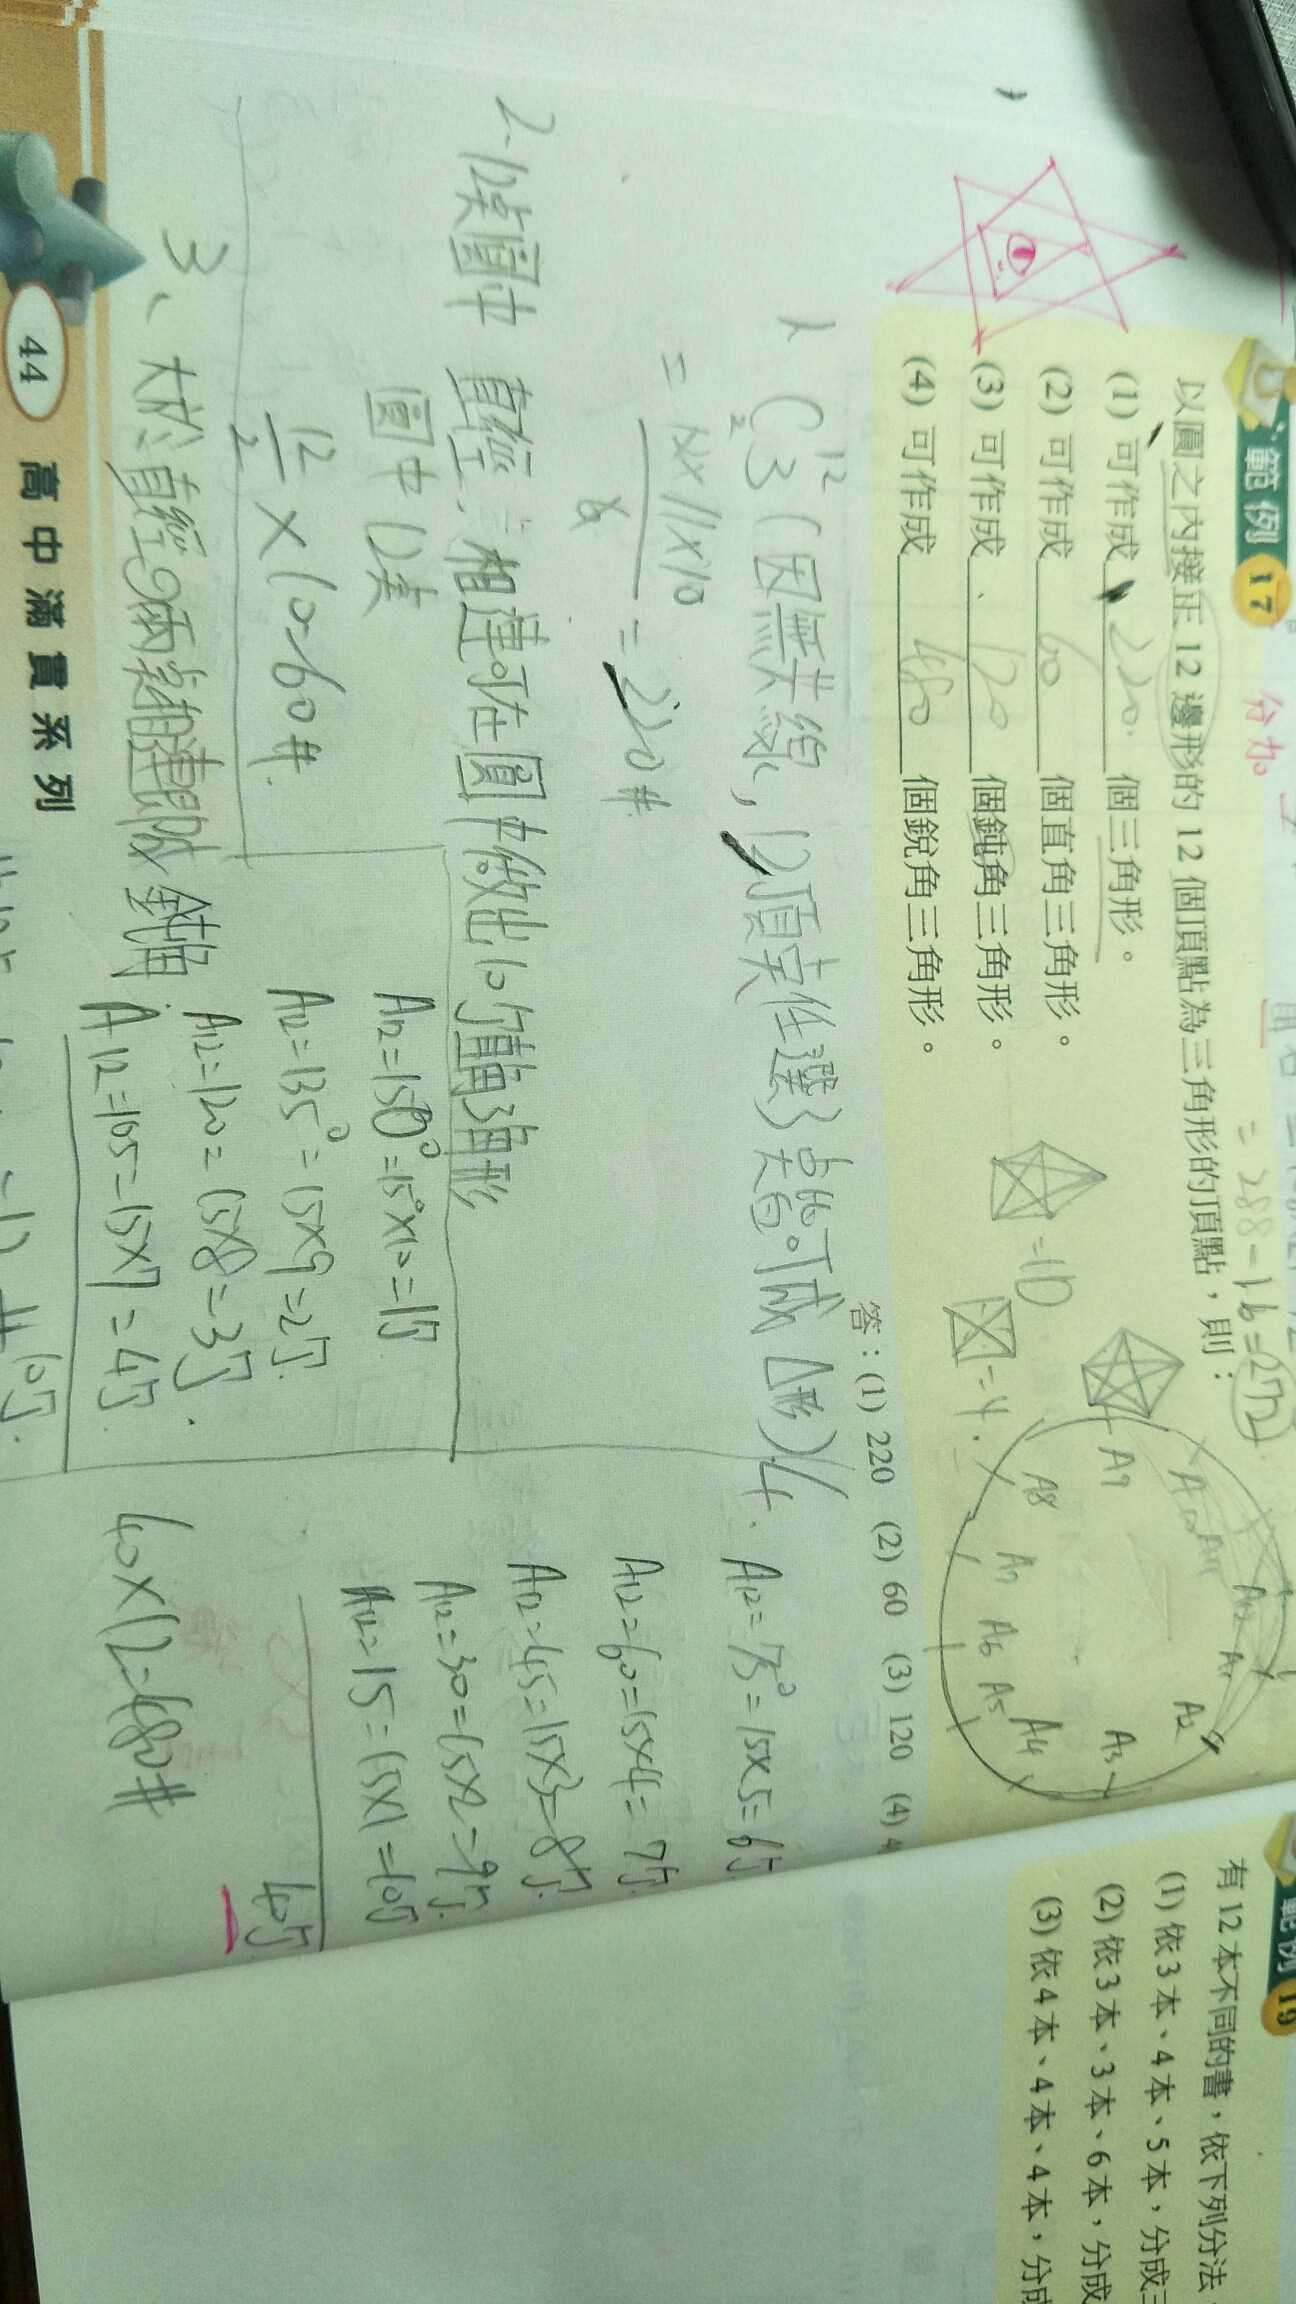 範例 17
以圓之內接正 12 邊形的 12 個頂點為三角形的頂點，則：
(1) 可作成 220 個三角形。
(2) 可作成 60 個直角三角形。
(3) 可作成 120 個鈍角三角形。
(4) 可作成 480 個銳角三角形。
答：(1) 220 (2) 60 (3) 120 (4) 4
= 288 - 16 = 272
分加
=10
=4.
A9
A8
A7
A6
A5
A4
A3
A2
A1
A12
A11
A10
1
C 12 3 (因無共線, 12頂点任選3點皆可成△形)
= 12×11×10 / 6 = 220 #
2. 12點圓中 直徑 相連可在圓中做出10個直角三角形
圓中12點
12/2 × 10 = 60 #
3、大於直徑的兩點相連即成鈍角
A12=150°=15°×10=1個
A12=135°=15×9=2個
A12=120=15×8=3個.
A12=105=15×7=4個
10個.
=12
4.
A12=75°=15×5=6個
A12=60=15×4=7個
A12=45=15×3=8個
A12=30=15×2=9個
A12=15=15×1=10個
40個
40×12=480 #
44 高中滿貫系列
範例 19
有 12 本不同的書，依下列分法
(1) 依 3 本、4 本、5 本，分成三
(2) 依 3 本、3 本、6 本，分成
(3) 依 4 本、4 本、4 本，分成